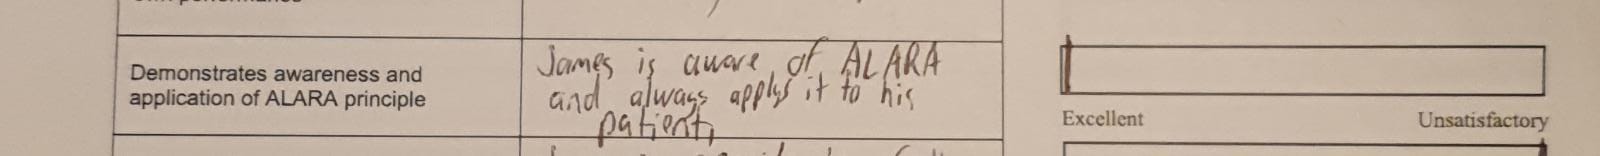 Demonstrates awareness and
application of ALARA principle
James is aware of ALARA
and always applys it to his
patients
Excellent
Unsatisfactory